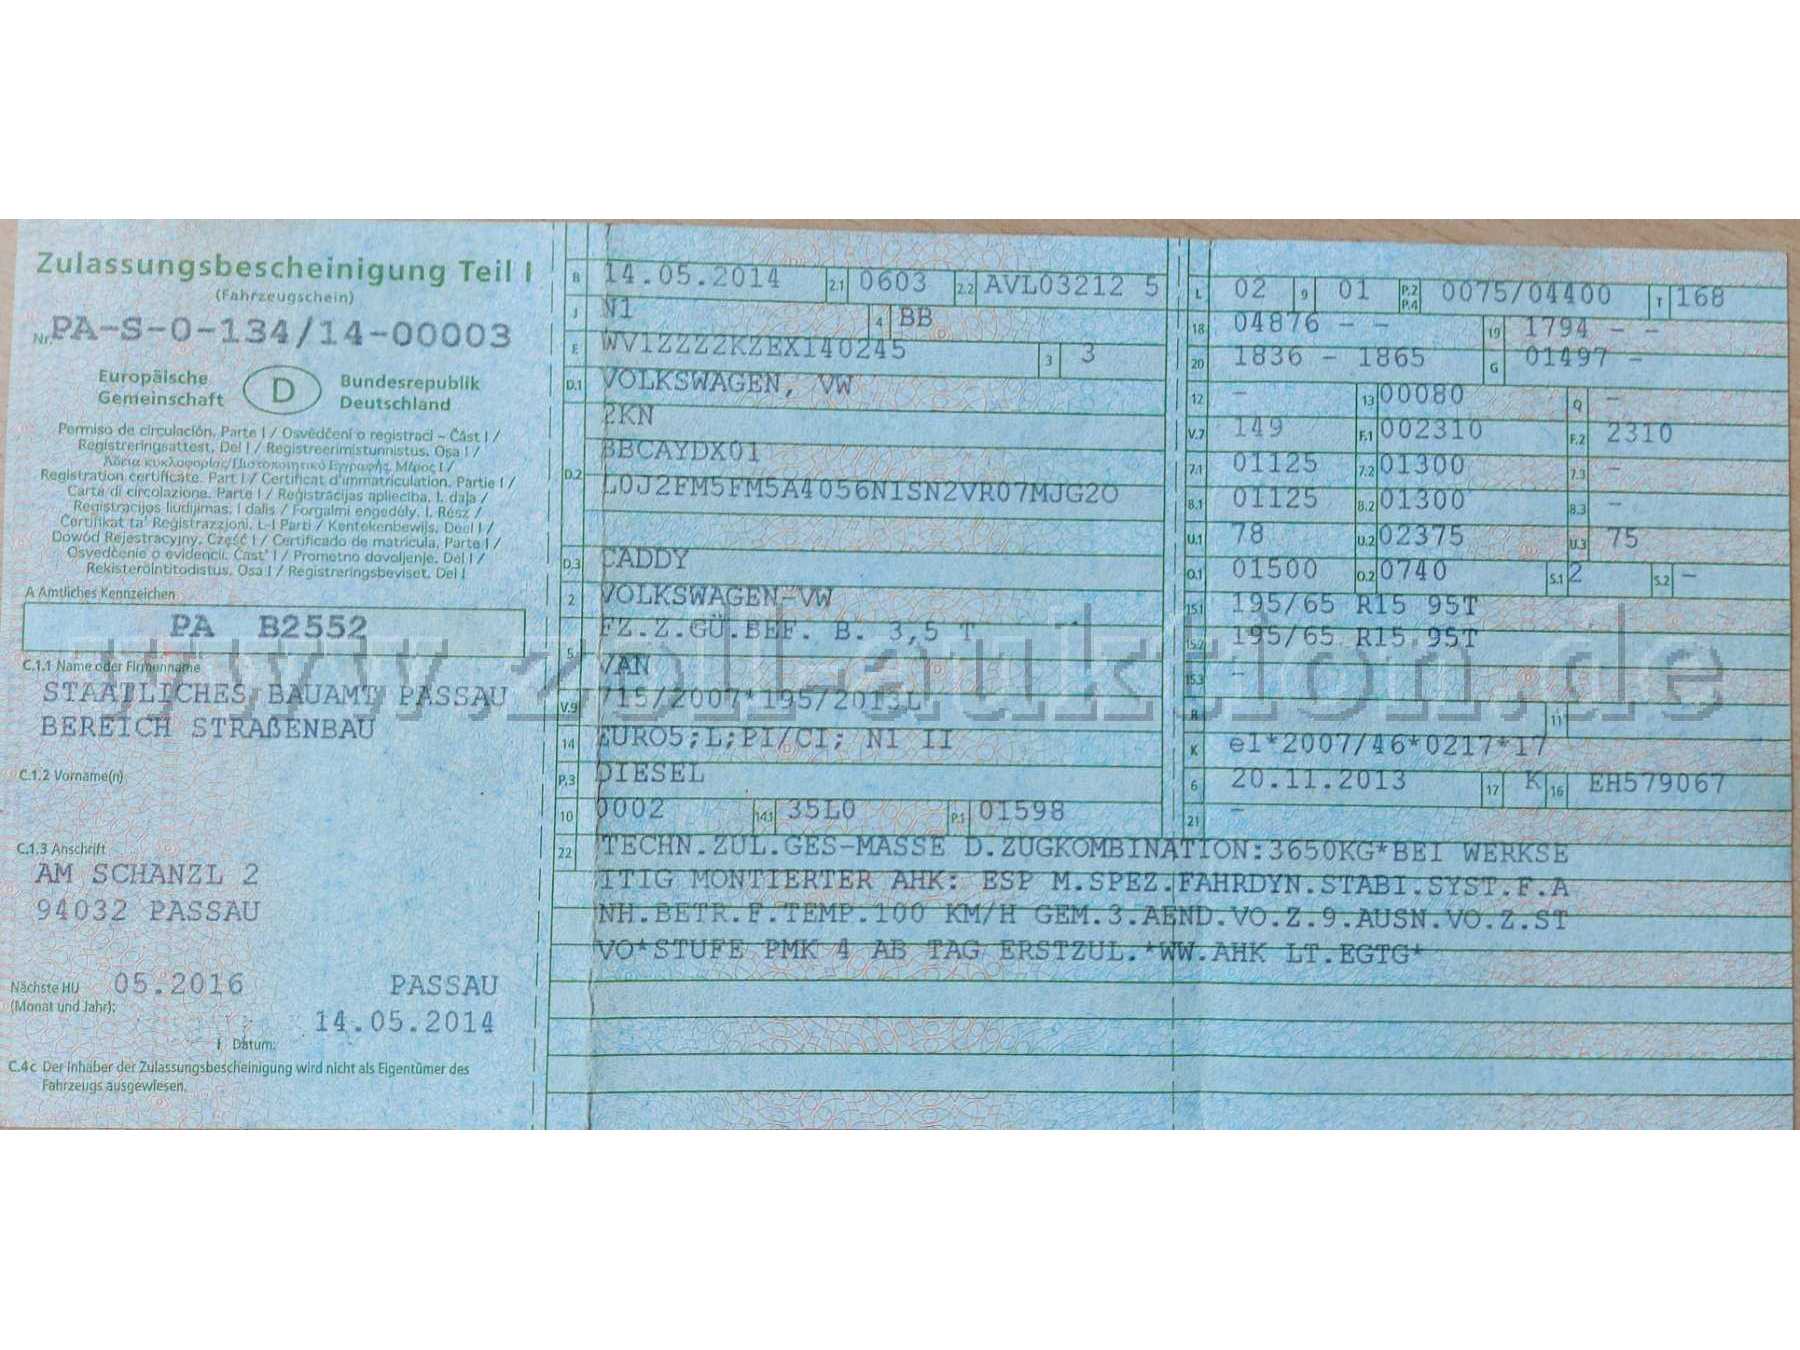 Zulassungsbescheinigung Teil I
(Fahrzeugschein)
Nr. PA-S-0-134/14-00003
Europäische Gemeinschaft
D
Bundesrepublik Deutschland
Permiso de circulación. Parte I / Osvědčení o registraci – Část I /
Registreringsattest. Del I / Registreerimistunnistus. Osa I /
Άδεια κυκλοφορίας/Πιστοποιητικό Εγγραφής. Μέρος I /
Registration certificate. Part I / Certificat d'immatriculation. Partie I /
Carta di circolazione. Parte I / Reģistrācijas apliecība. I. daļa /
Registracijos liudijimas. I dalis / Forgalmi engedély. I. Rész /
Ċertifikat ta' Reġistrazzjoni. L-I Parti / Kentekenbewijs. Deel I /
Dowód Rejestracyjny. Część I / Certificado de matrícula. Parte I /
Osvedčenie o evidencii. Časť I / Prometno dovoljenje. Del I /
Rekisteröintitodistus. Osa I / Registreringsbeviset. Del I
A Amtliches Kennzeichen
PA B2552
C.1.1 Name oder Firmenname
STAATLICHES BAUAMT PASSAU
BEREICH STRAßENBAU
C.1.2 Vorname(n)
C.1.3 Anschrift
AM SCHANZL 2
94032 PASSAU
Nächste HU 05.2016 PASSAU
(Monat und Jahr):
14.05.2014
I Datum:
C.4c Der Inhaber der Zulassungsbescheinigung wird nicht als Eigentümer des
Fahrzeugs ausgewiesen.
B 14.05.2014 2.1 0603 2.2 AVL03212 5
J N1 4 BB
E WV1ZZZ2KZEX140245 3 3
D.1 VOLKSWAGEN, VW
2KN
BBCAYDX01
D.2 L0J2FM5FM5A4056N1SN2VR07MJG2O
D.3 CADDY
2 VOLKSWAGEN-VW
FZ.Z.GÜ.BEF. B. 3,5 T
5 VAN
V.9 715/2007*195/2013L
14 EURO5;L;PI/CI; N1 II
P.3 DIESEL
10 0002 14.1 35L0 P.1 01598
L 02 9 01 P.2 P.4 0075/04400 T 168
18 04876 - - 19 1794 - -
20 1836 - 1865 G 01497 -
12 - 13 00080 Q -
V.7 149 F.1 002310 F.2 2310
7.1 01125 7.2 01300 7.3 -
8.1 01125 8.2 01300 8.3 -
U.1 78 U.2 02375 U.3 75
O.1 01500 O.2 0740 S.1 2 S.2 -
15.1 195/65 R15 95T
15.2 195/65 R15 95T
15.3 -
R 11
K e1*2007/46*0217*17
6 20.11.2013 17 K 16 EH579067
21 -
22 TECHN.ZUL.GES-MASSE D.ZUGKOMBINATION:3650KG*BEI WERKSE
ITIG MONTIERTER AHK: ESP M.SPEZ.FAHRDYN.STABI.SYST.F.A
NH.BETR.F.TEMP.100 KM/H GEM.3.AEND.VO.Z.9.AUSN.VO.Z.ST
VO*STUFE PMK 4 AB TAG ERSTZUL.*WW.AHK LT.EGTG*
www.zoll-auktion.de